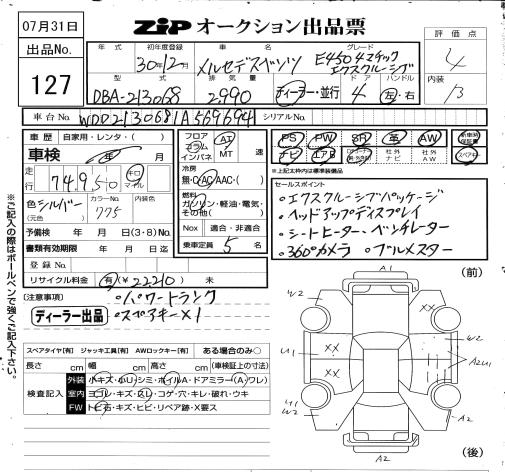 07月31日
ZIP オークション出品票
評価点
4
出品No.
127
年式
初年度登録
30年12月
車名
メルセデスベンツ
グレード
E450 4マチック
エクスクルーシブ
内装
B
型式
DBA-213068
排気量
2,990
ディーラー・並行
ドア
4
ハンドル
左・右
車台No.
WDD2130681A569694
シリアルNo.
車歴 自家用・レンタ・( )
車検 年 月
走行 74,950 キロ マイル
色 シルバー
(元色)
カラーNo.
775
内装色
予備検 年 月 日(3・8)No.
書類有効期限 年 月 日迄
登録No.
リサイクル料金 有(¥22210) 未
フロア
コラム
インパネ
AT
MT
速
冷房
無・C・AC・AAC・( )
燃料
ガソリン・軽油・電気・
その他( )
Nox 適合・非適合
乗車定員 5 名
PS PW SR 革 AW 新車時保証書
ナビ エアB 社外ナビ 社外AW スペアキー
※上記太枠内は標準装備品
セールスポイント
・エクスクルーシブパッケージ
・ヘッドアップディスプレイ
・シートヒーター・ベンチレーター
・360°カメラ ・ブルメスター
※ご記入の際はボールペンで強くご記入下さい。
[注意事項]
・パワートランク
・スペアキー×1
ディーラー出品
スペアタイヤ[有] ジャッキ工具[有] AWロックキー[有] ある場合のみ○
長さ cm 幅 cm 高さ cm (車検証上の寸法)
検査記入
外装 小キズ・小リ・シミ・ホイルA・ドアミラー(A,ワレ)
室内 ヨゴレ・キズ・スレ・コゲ・穴・キレ・破れ・ウキ
FW トビ石・キズ・ヒビ・リペア跡・X要ス
(前)
A1
W2
XX
W2
U1
XX
XX
A2U1
U1
W2
A2
A2
(後)